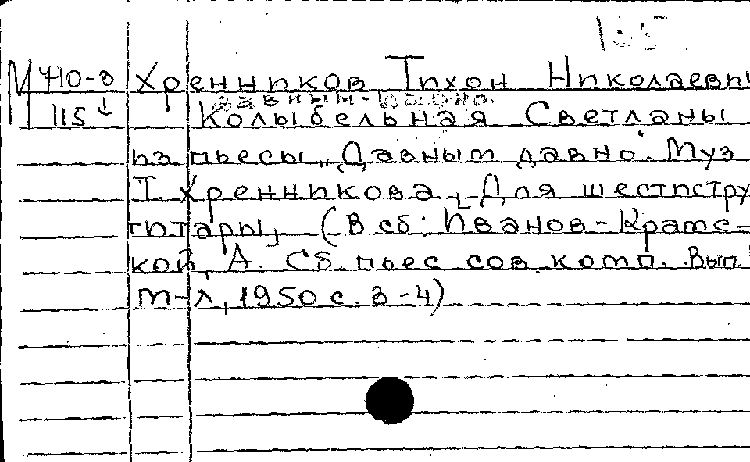 М 710-8 Хренников Тихон Николаевич
115 Колыбельная Светланы
из пьесы „Давным давно". Муз
Т Хренникова, Для шестистру
гитары, (В сб: Иванов-Крамс-
кой, А. Сб. пьес сов. комп. Вып
М-Л, 1950 с. 3-4)